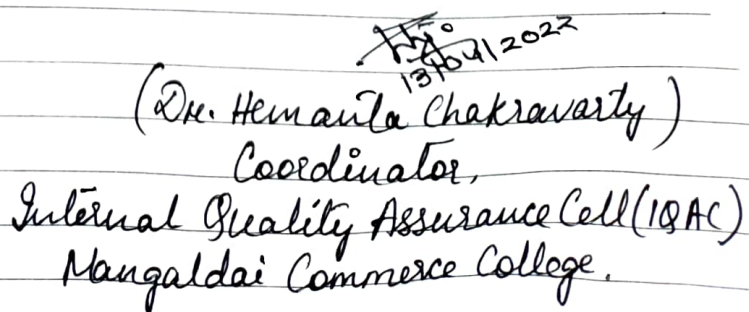 13/04/2022
(Dr. Hemanta Chakravarty)
Coordinator,
Internal Quality Assurance Cell (IQAC)
Mangaldai Commerce College.